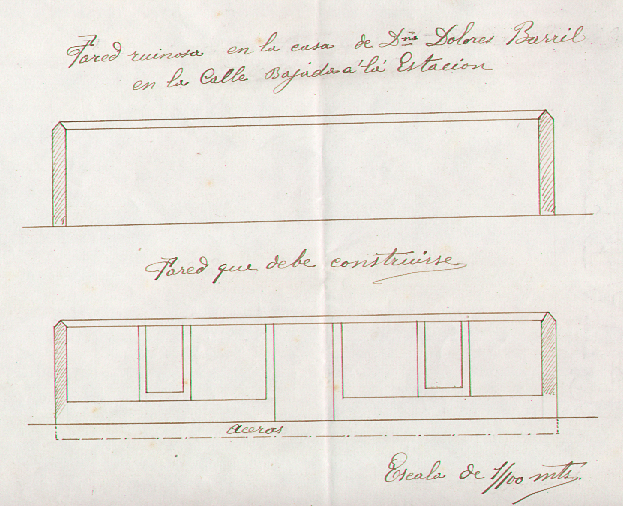 Pared ruinosa en la casa de Dña Dolores Barril
en la Calle Bajada á la Estacion
Pared que debe construirse
aceros
Escala de 1/100 mts.